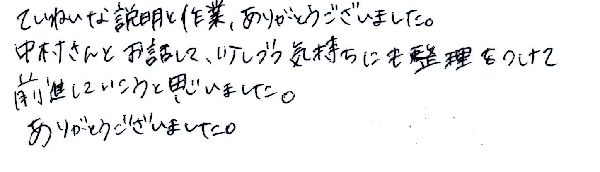 ていねいな説明と作業、ありがとうございました。
中村さんとお話して、気持ちにも整理をつけて
前進していこうと思いました。
ありがとうございました。